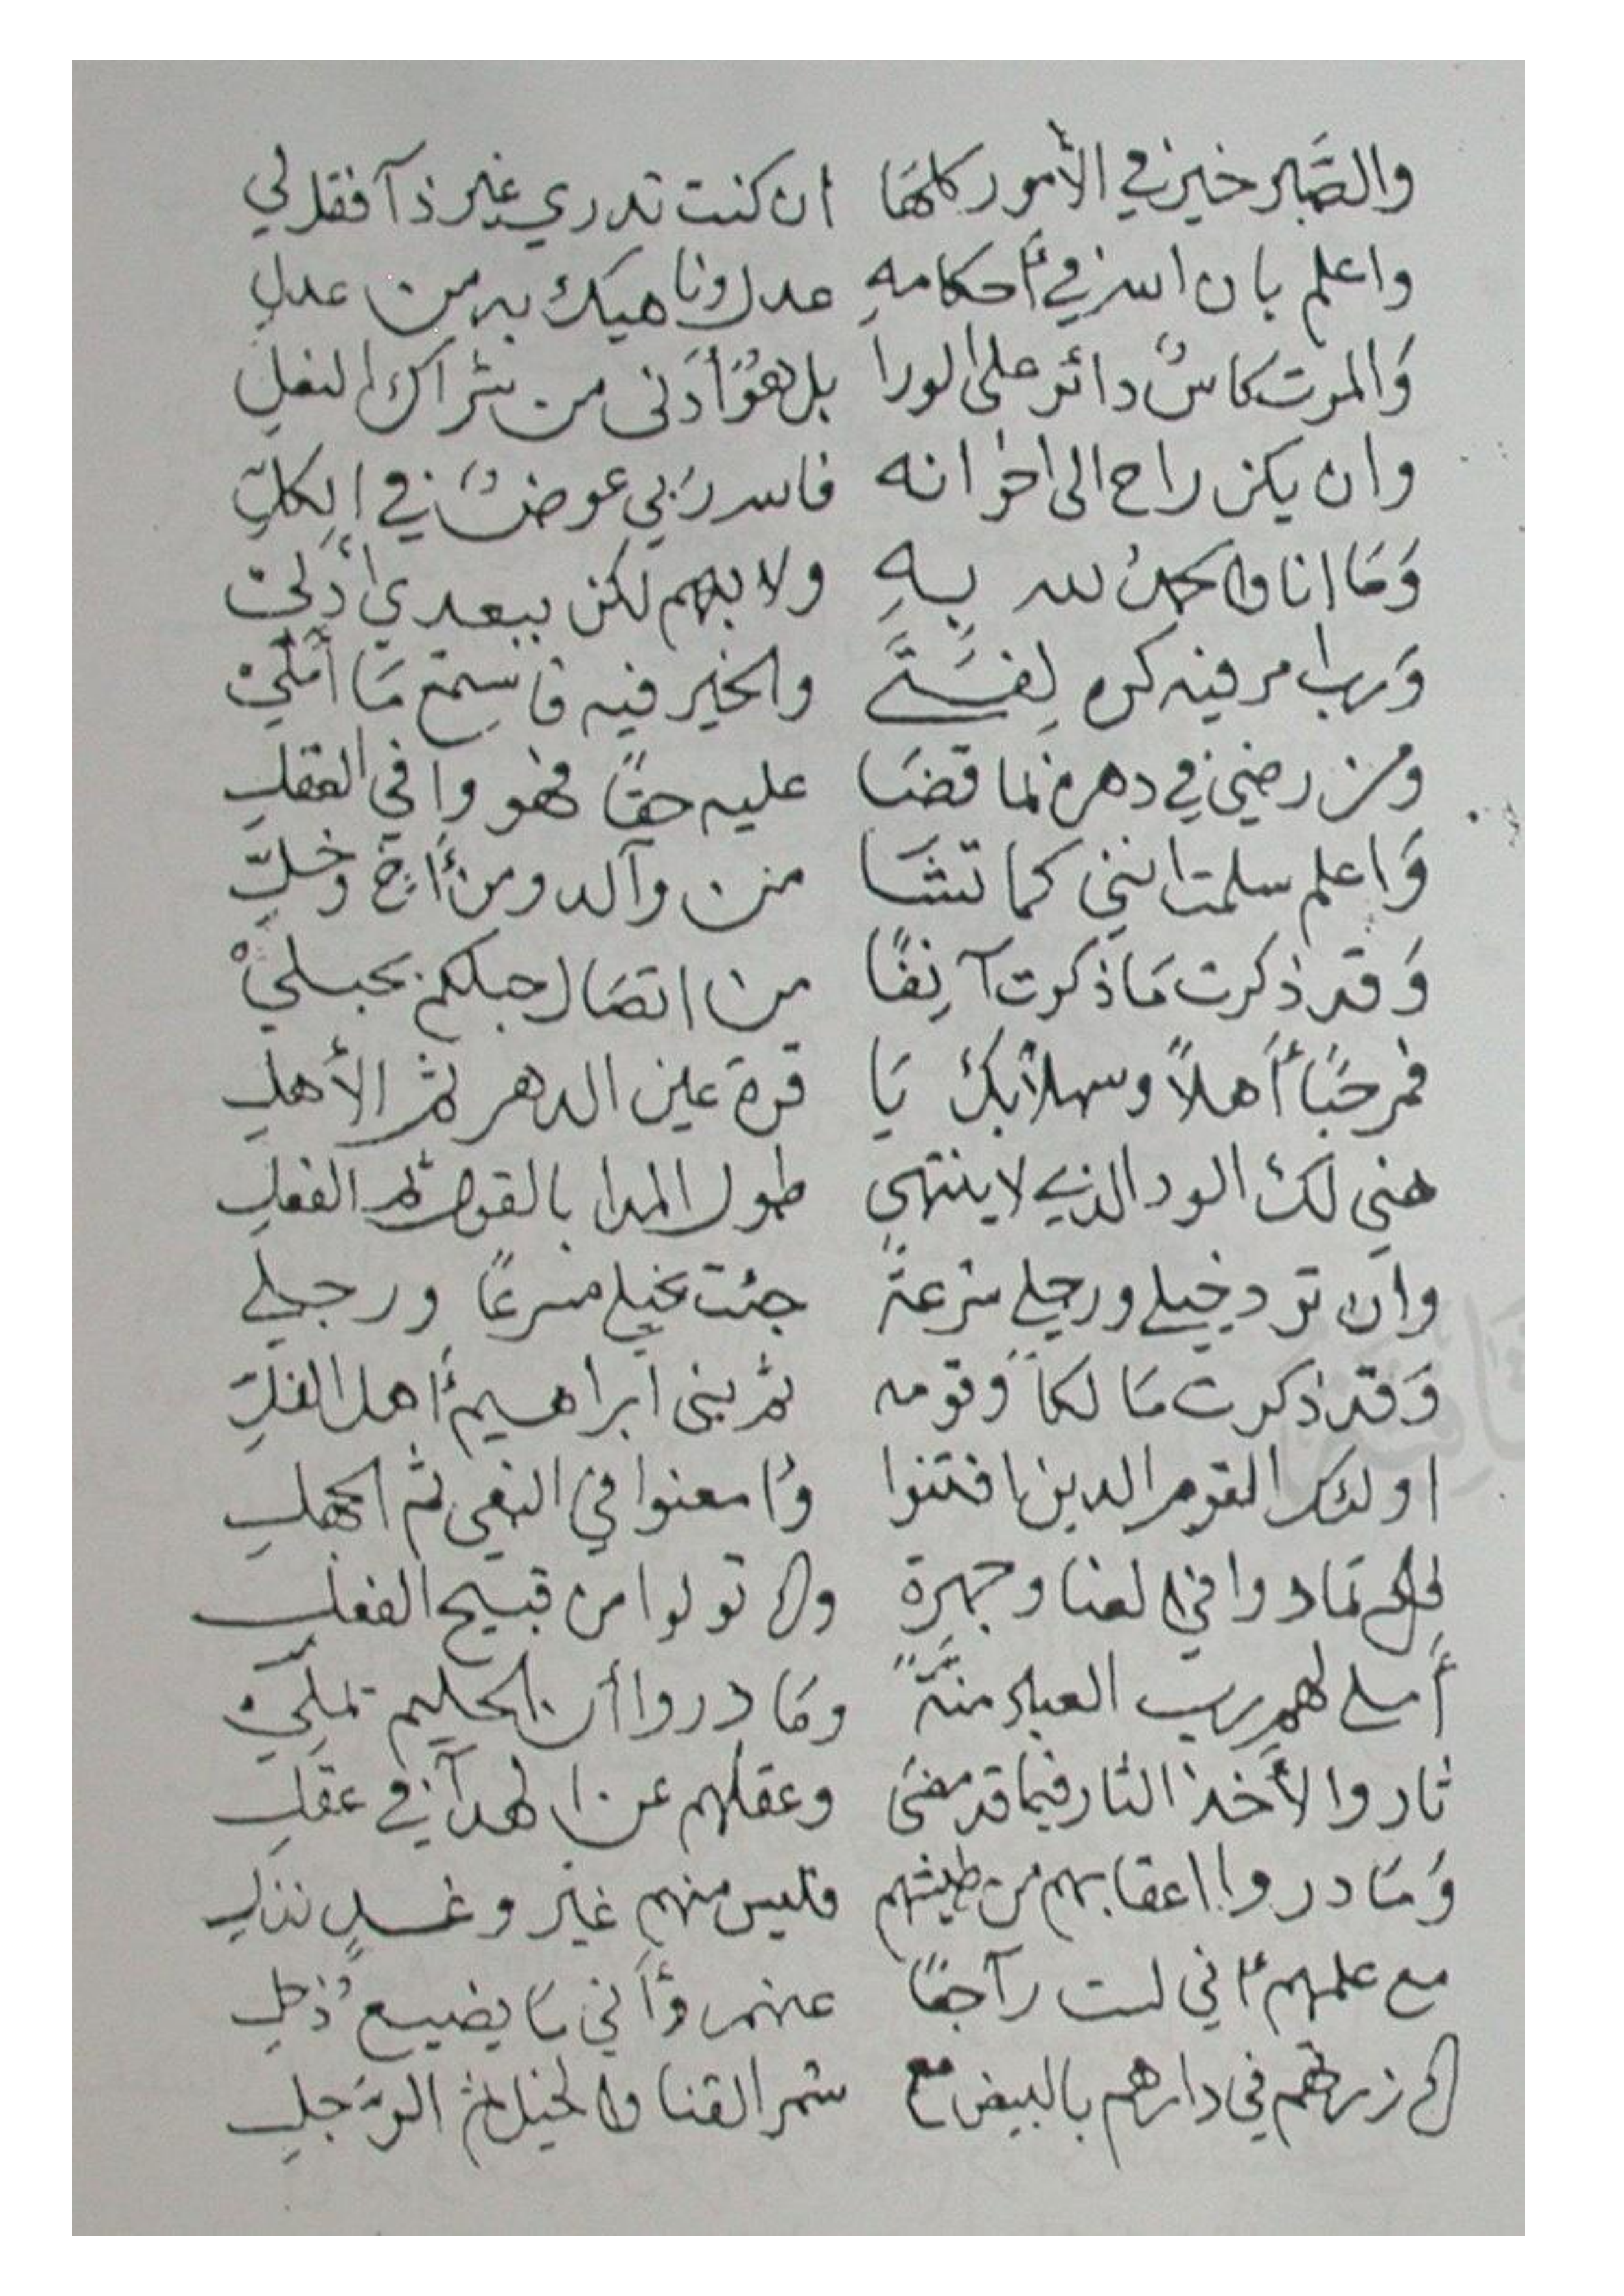 والصَّبر خير في الأمور كلهَا ان كنت تدري غير ذآ فقل لي
واعلم بان الله في أحكامهِ عدل وناهيك به من عدلِ
وَالموت كاسٌ دائر على الورا بل هوَ أدَنى من شراك النعلِ
وان يكن راح الى اخوانه فالله رَبي عوضٌ في الكلِّ
وَمَا انا والحمدُ لله بِهِ ولا بهم لكن ببعدي أدلي
وَرب امر فيه كره لِفَتىً والخير فيه فاسِمَع مَا أملي
ومن رضي في دهره بما قضَا عليه حقاً فهو وافي العقلِ
وَاعلم سلمت انني كما تشَا من وآلد ومن أخ وخلِّ
وَقد ذكرت مَا ذكرت آنِفاً من اتصَال حبلكم بحبليْ
فمرحَبًا أَهلاً وسهلاً بك يَا قرة عين الدهر ثم الأهلِ
هني لك الود الذي لا ينتهي طول المدا بالقول ثم الفعلِ
وان ترد خيلي ورجلي سرعةً جئت بخيلي مسرعاً ورجلي
وَقد ذكرت مَالكاً وَقومه ثم بني ابراهيم أهل الغلِّ
اولئك القوم الدين افتنوا وأمعنوا في البغي ثم الجهلِ
فكم تمادوا في لعنا وجهرة وكم تولوا من قبيح الفعلِ
أملى لهم رب العباد منةً ومَا دروا أن الحليم يملي
ثاروا لأخذ الثار فيما قد مضَى وعقلهم عن الهدآ في عقلِ
وَمَا دروا اعقابهم من طيشهم فليس منهم غير وغدٍ نذلِ
مع علمهم أني لست رآجعًا عنهم وَأني مَا يضيع ذحلي
كم زرتهم في دارهم بالبيض مع سمر القنا والخيل ثم الرَجلِ